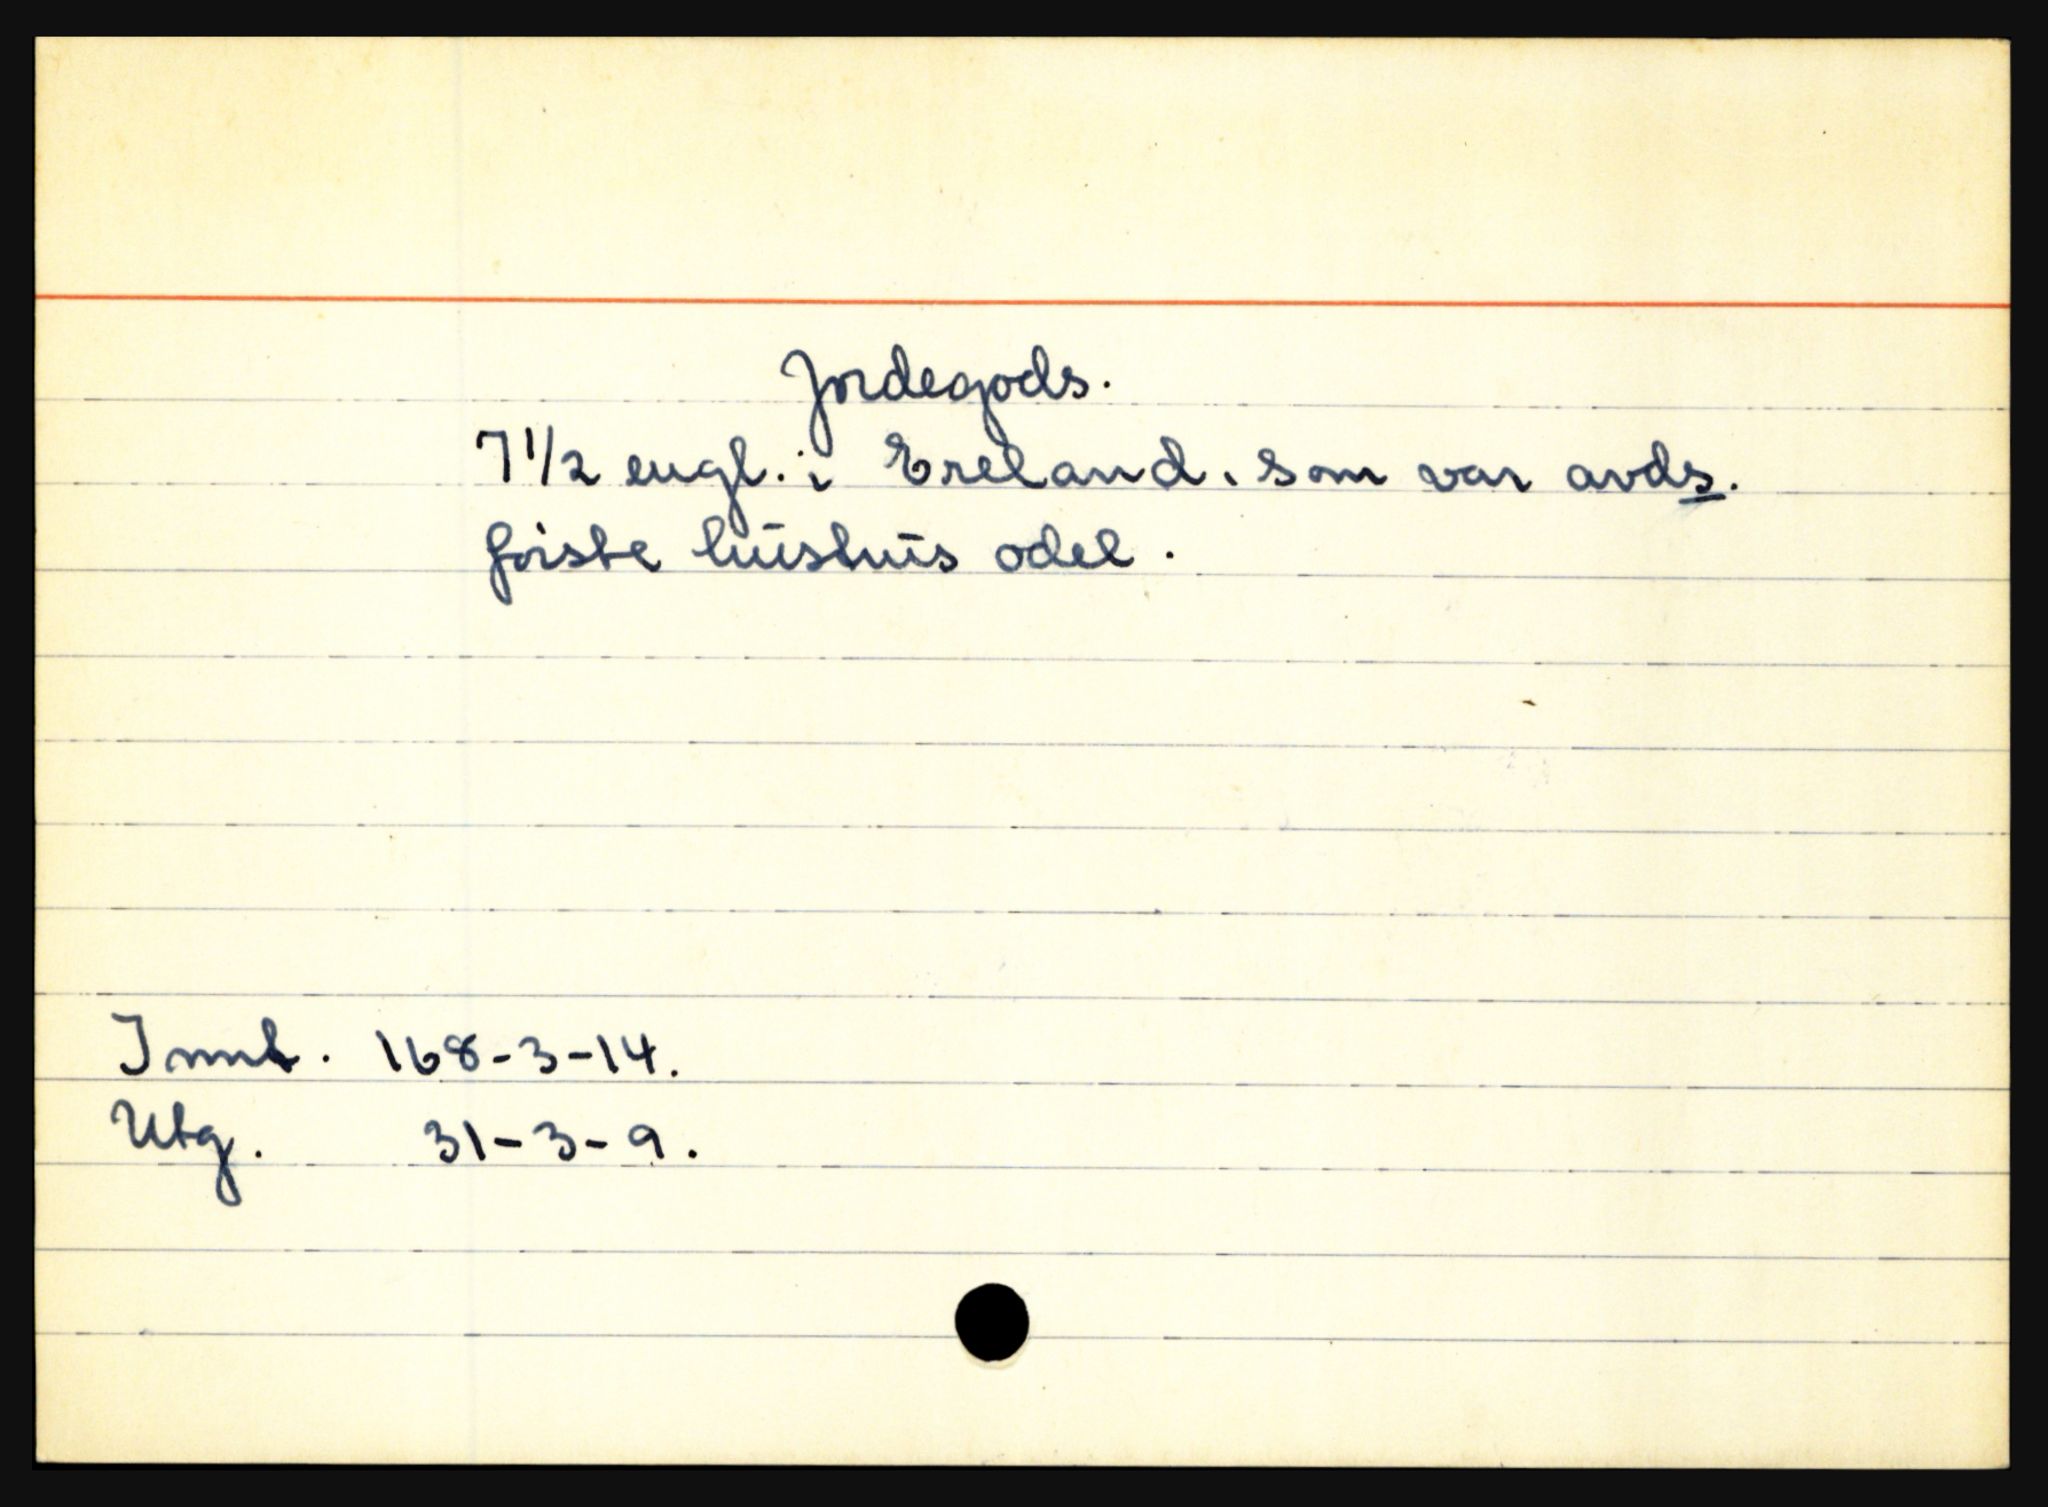 Jordegods.
7 1/2 engl. i Ereland. som var avds.
første hustrus odel.
Innt. 168-3-14.
Utg. 31-3-9.